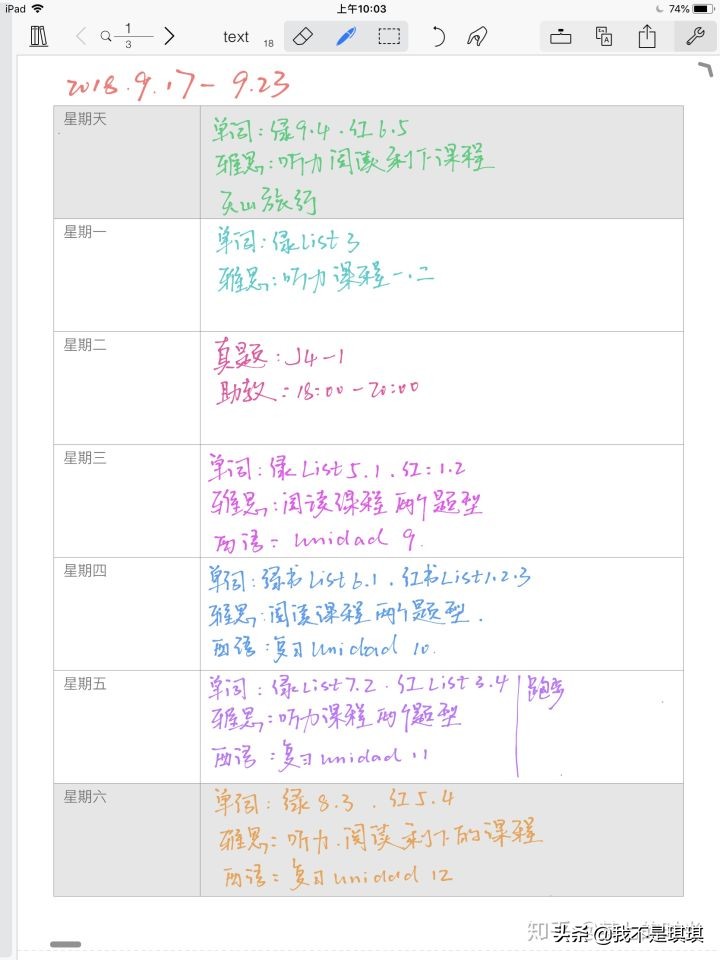 iPad
上午10:03
74%
1
3
text
18
2018.9.17-9.23
星期天
单词:绿9.4.红6.5
雅思:听力阅读剩下课程
天山旅行
星期一
单词:绿List 3
雅思:听力课程一.二
星期二
真题:J4-1
助教:18:00-20:00
星期三
单词:绿List 5.1.红:1.2
雅思:阅读课程两个题型
西语:unidad 9.
星期四
单词:绿书List 6.1.红书List1.2.3
雅思:阅读课程两个题型.
西语:复习unidad 10.
星期五
单词:绿List7.2.红List3.4
跑步
雅思:听力课程两个题型
西语:复习unidad 11
星期六
单词:绿8.3.红5.4
雅思:听力.阅读剩下的课程
西语:复习unidad 12
知乎
头条 @我不是琪琪